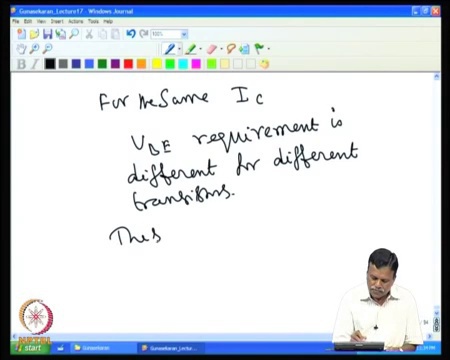 Gunasekaran_Lecture17 - Windows Journal
File Edit View Insert Actions Tools Help
For the Same Ic
VBE requirement is
different for different
transistors.
Thes
start
Gunasekaran
Gunasekaran_Lectu...